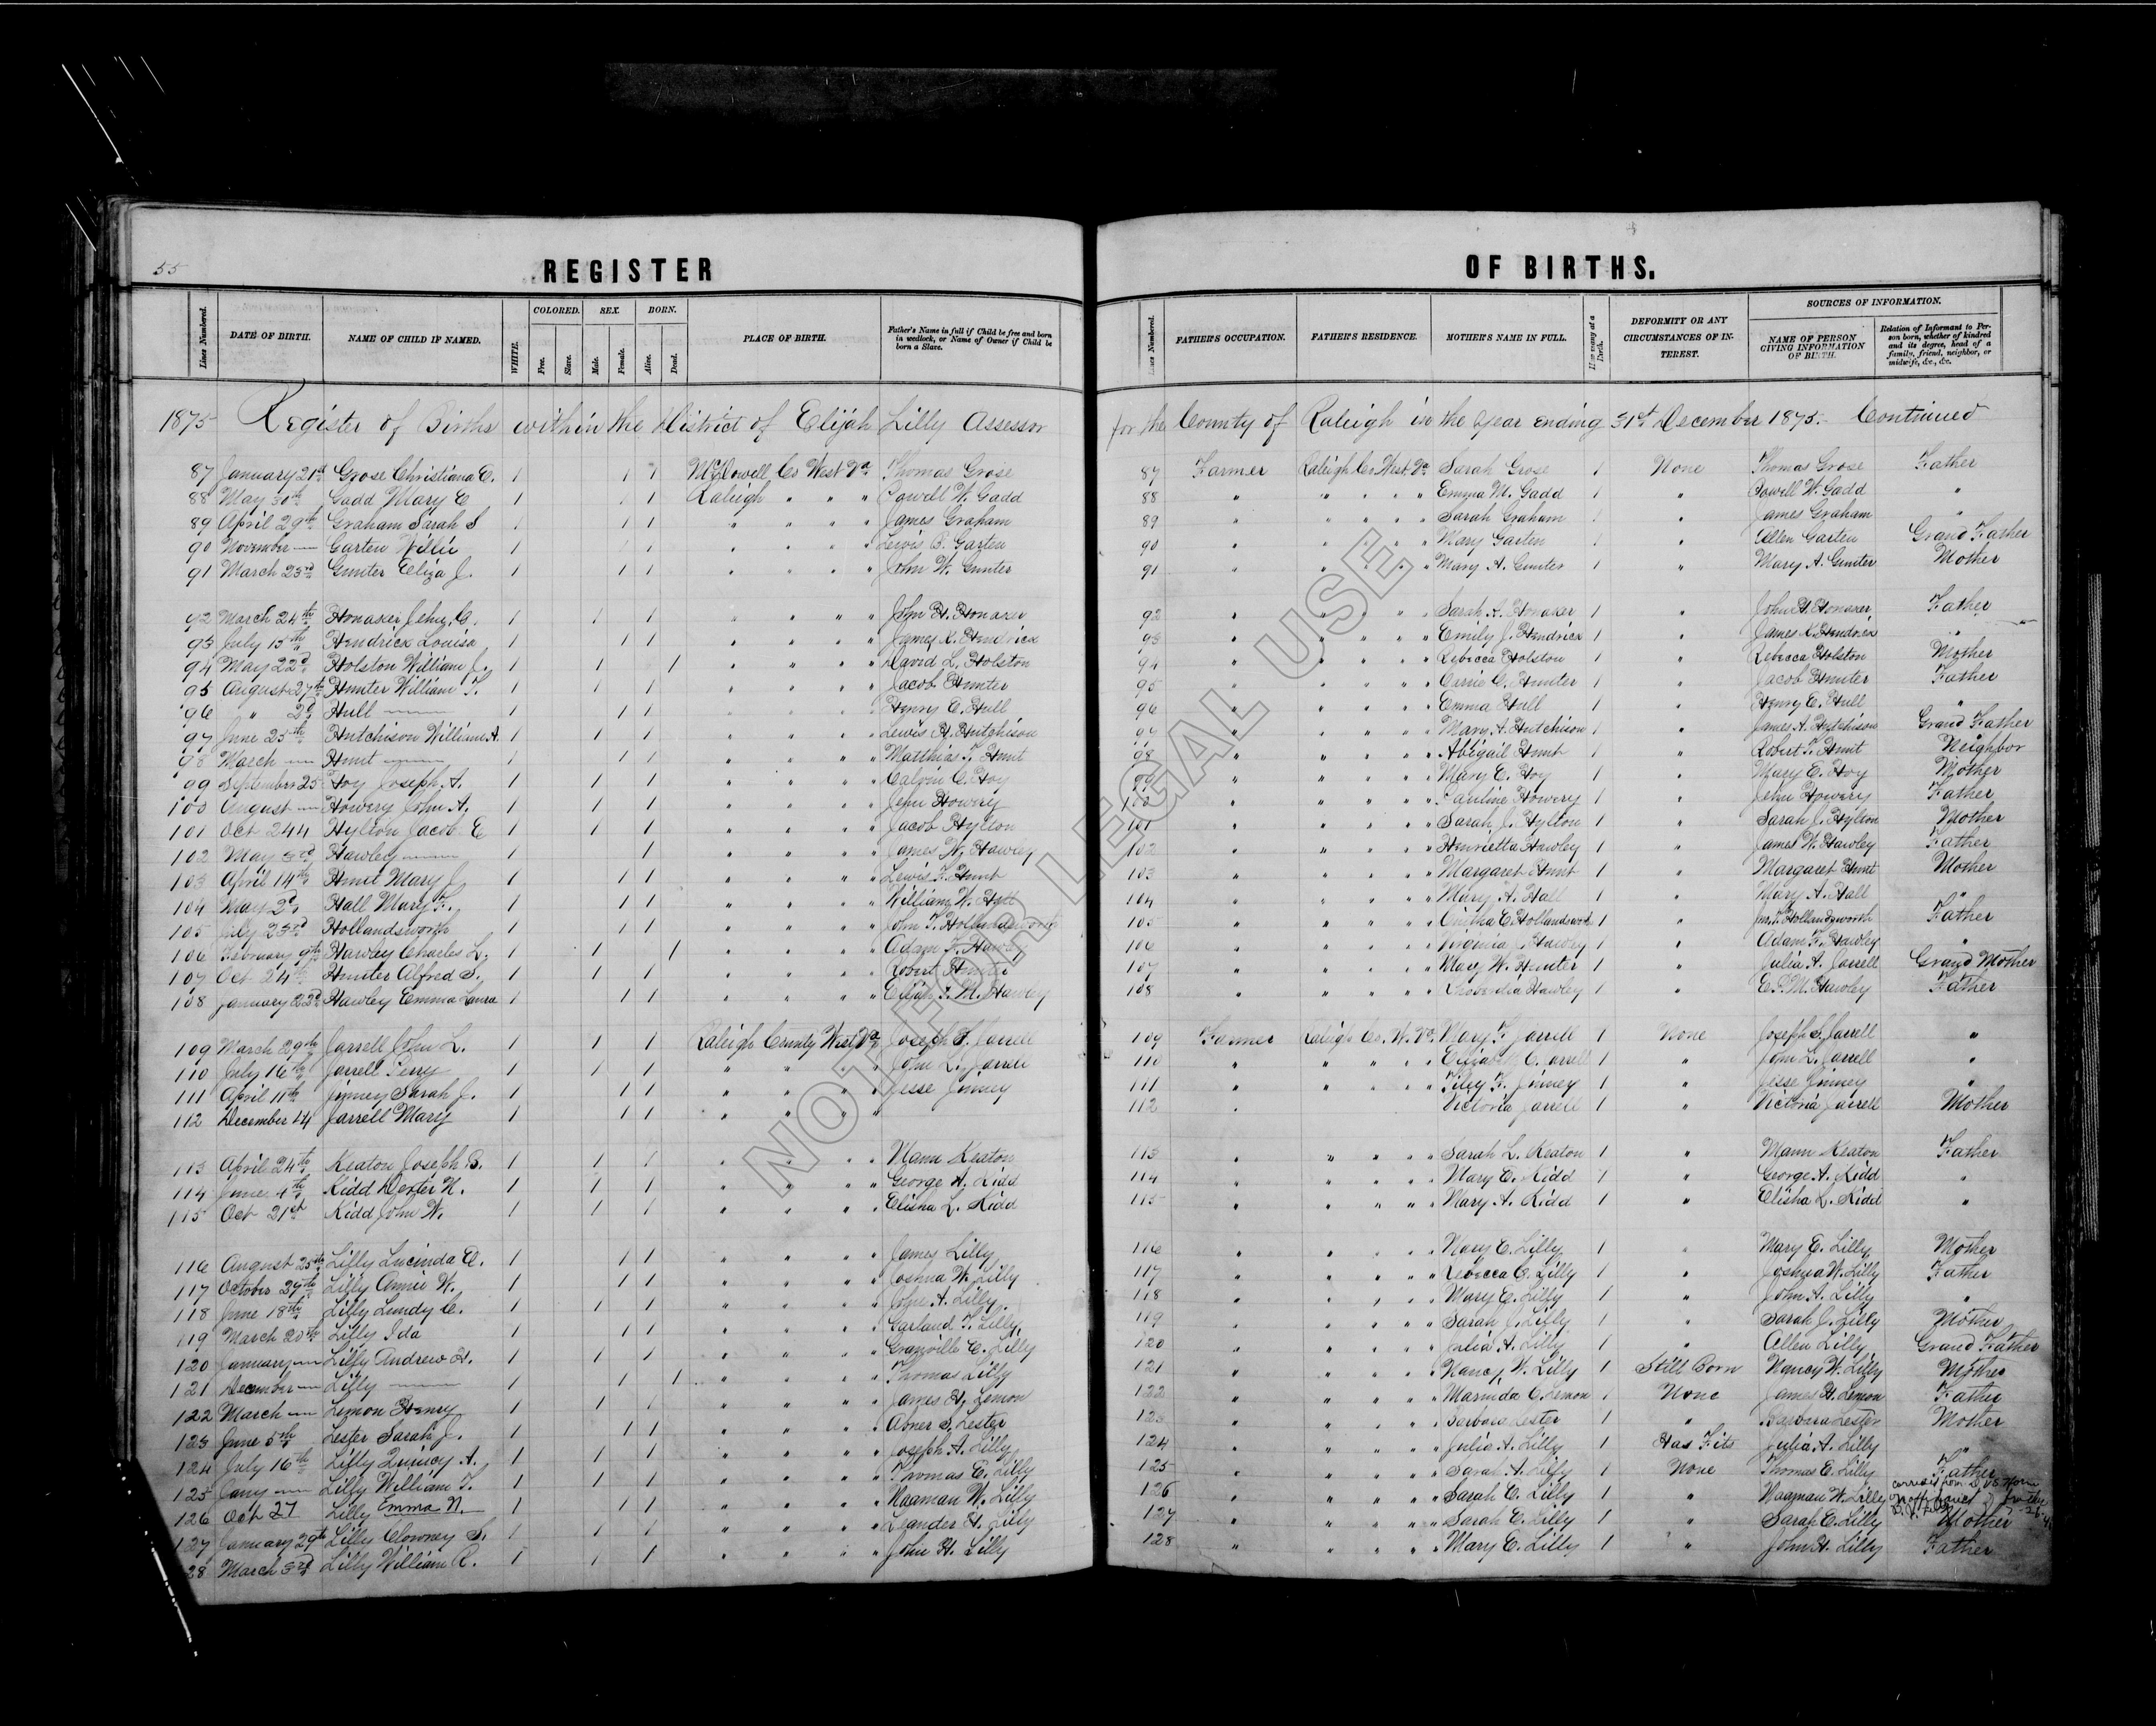 55
REGISTER OF BIRTHS.
Lines Numbered. DATE OF BIRTH. NAME OF CHILD IF NAMED. WHITE. COLORED. Free. Slave. SEX. Male. Female. BORN. Alive. Dead. PLACE OF BIRTH. Father's Name in full if Child be free and born in wedlock, or Name of Owner if Child be born a Slave. Lines Numbered. FATHER'S OCCUPATION. FATHER'S RESIDENCE. MOTHER'S NAME IN FULL. If so many at a Birth. DEFORMITY OR ANY CIRCUMSTANCES OF INTEREST. SOURCES OF INFORMATION. NAME OF PERSON GIVING INFORMATION OF BIRTH. Relation of Informant to Person born, whether of kindred and its degree, head of a family, friend, neighbor, or midwife, &c., &c.
1875 Register of Births within the District of Elijah Lilly Assessor for the County of Raleigh in the year ending 31st December 1875. Continued
87 January 21st Grose Christiana E. 1 1 1 McDowell Co West Va Thomas Grose 87 Farmer Raleigh Co West Va Sarah Grose 1 None Thomas Grose Father
88 May 30th Gadd Mary E 1 1 1 Raleigh " " " Powell W. Gadd 88 " " " " " Emma M. Gadd 1 " Powell W. Gadd "
89 April 29th Graham Sarah S 1 1 1 " " " " James Graham 89 " " " " " Sarah Graham 1 " James Graham "
90 November — Garten Willie 1 1 1 " " " " Lewis B. Garten 90 " " " " " Mary Garten 1 " Allen Garten Grand Father
91 March 23rd Gunter Eliza J. 1 1 1 " " " " John W. Gunter 91 " " " " " Mary A. Gunter 1 " Mary A. Gunter Mother
92 March 24th Honaker Jehu C. 1 1 1 " " " " John H. Honaker 92 " " " " " Sarah A. Honaker 1 " John H. Honaker Father
93 July 15th Hendrick Louisa 1 1 1 " " " " James K. Hendrick 93 " " " " " Emily J. Hendrick 1 " James K. Hendrick "
94 May 22d Holston William J. 1 1 1 " " " " David L. Holston 94 " " " " " Rebecca Holston 1 " Rebecca Holston Mother
95 August 27th Hunter William T. 1 1 1 " " " " Jacob Hunter 95 " " " " " Carrie C. Hunter 1 " Jacob Hunter Father
96 " 2d Hull — 1 1 1 " " " " Henry C. Hull 96 " " " " " Emma Hull 1 " Henry C. Hull "
97 June 25th Hutchison William A. 1 1 1 " " " " Lewis H. Hutchison 97 " " " " " Mary A. Hutchison 1 " James A. Hutchison Grand Father
98 March — Hunt — 1 1 1 " " " " Matthias T. Hunt 98 " " " " " Abigail Hunt 1 " Robert T. Hunt Neighbor
99 September 25 Hoy Joseph A. 1 1 1 " " " " Calvin C. Hoy 99 " " " " " Mary E. Hoy 1 " Mary E. Hoy Mother
100 August — Howery John A. 1 1 1 " " " " Jehu Howery 100 " " " " " Pauline Howery 1 " Jehu Howery Father
101 Oct 244 Hylton Jacob E 1 1 1 " " " " Jacob Hylton 101 " " " " " Sarah J. Hylton 1 " Sarah J. Hylton Mother
102 May 3rd Hawley — 1 1 " " " " James W. Hawley 102 " " " " " Henrietta Hawley 1 " James W. Hawley Father
103 April 14th Hunt Mary J. 1 1 1 " " " " Lewis T. Hunt 103 " " " " " Margaret Hunt 1 " Margaret Hunt Mother
104 May 2d Hall Mary F. 1 1 1 " " " " William W. Hall 104 " " " " " Mary A. Hall 1 " Mary A. Hall "
105 July 23rd Hollandsworth 1 1 1 " " " " John T. Hollandsworth 105 " " " " " C. Hollandsworth 1 " Jno. T. Hollandsworth Father
106 February 9th Hawley Charles L. 1 1 1 " " " " Adam F. Hawley 106 " " " " " Virginia C. Hawley 1 " Adam F. Hawley "
107 Oct 24th Hunter Alfred S. 1 1 1 " " " " Robert Hunter 107 " " " " " Mary W. Hunter 1 " Julia A. Jarrell Grand Mother
108 January 22d Hawley Emma Laura 1 1 1 " " " " Elijah T. M. Hawley 108 " " " " " Hawley 1 " E. T. M. Hawley Father
109 March 29th Jarrell John L. 1 1 1 Raleigh County West Va Joseph S. Jarrell 109 Farmer Raleigh Co. W. Va. Mary F. Jarrell 1 None Joseph S. Jarrell "
110 July 16th Jarrell Perry 1 1 1 " " " " John L. Jarrell 110 " " " " " Elizabeth C. Jarrell 1 " John L. Jarrell "
111 April 11th Jinney Sarah J. 1 1 1 " " " " Jesse Jinney 111 " " " " " F. Jinney 1 " Jesse Jinney "
112 December 14 Jarrell Mary 1 1 1 " " " " 112 " Victoria Jarrell 1 " Victoria Jarrell Mother
113 April 24th Keaton Joseph B. 1 1 1 " " " " Mann Keaton 113 " " " " " Sarah L. Keaton 1 " Mann Keaton Father
114 June 4th Kidd Dexter N. 1 1 1 " " " " George A. Kidd 114 " " " " " Mary E. Kidd 1 " George A. Kidd "
115 Oct 21st Kidd John W. 1 1 1 " " " " Elisha L. Kidd 115 " " " " " Mary A. Kidd 1 " Elisha L. Kidd "
116 August 25th Lilly Lucinda E. 1 1 1 " " " " James Lilly 116 " " " " " Mary E. Lilly 1 " Mary E. Lilly Mother
117 October 27th Lilly Annie W. 1 1 1 " " " " Joshua W. Lilly 117 " " " " " Rebecca C. Lilly 1 " Joshua W. Lilly Father
118 June 18th Lilly Lundy C. 1 1 1 " " " " John A. Lilly 118 " " " " " Mary E. Lilly 1 " John A. Lilly "
119 March 20th Lilly Ida 1 1 1 " " " " Garland T. Lilly 119 " " " " " Sarah J. Lilly 1 " Sarah J. Lilly Mother
120 January — Lilly Andrew H. 1 1 1 " " " " Granville C. Lilly 120 " " " " " Julia A. Lilly 1 " Allen Lilly Grand Father
121 December — Lilly — 1 1 1 " " " " Thomas Lilly 121 " " " " " Nancy W. Lilly 1 Still Born Nancy W. Lilly Mother
122 March — Lemon Henry 1 1 1 " " " " James H. Lemon 122 " " " " " Marinda C. Lemon 1 None James H. Lemon Father
123 June 5th Lester Sarah J. 1 1 1 " " " " Abner S. Lester 123 " " " " " Barbara Lester 1 " Barbara Lester Mother
124 July 16th Lilly Quincy A. 1 1 1 " " " " Joseph A. Lilly 124 " " " " " Julia A. Lilly 1 Has Fits Julia A. Lilly "
125 Jany — Lilly William T. 1 1 1 " " " " Thomas E. Lilly 125 " " " " " Sarah A. Lilly 1 None Thomas E. Lilly Father
126 Oct 27 Lilly Emma N. 1 1 1 " " " " Naaman W. Lilly 126 " " " " " Sarah C. Lilly 1 " Naaman W. Lilly
127 January 29th Lilly S. 1 1 1 " " " " Leander H. Lilly 127 " " " " " Sarah E. Lilly 1 " Sarah E. Lilly Mother
28 March 3rd Lilly William R. 1 1 1 " " " " John H. Lilly 128 " " " " " Mary E. Lilly 1 " John H. Lilly Father
NOT FOR LEGAL USE